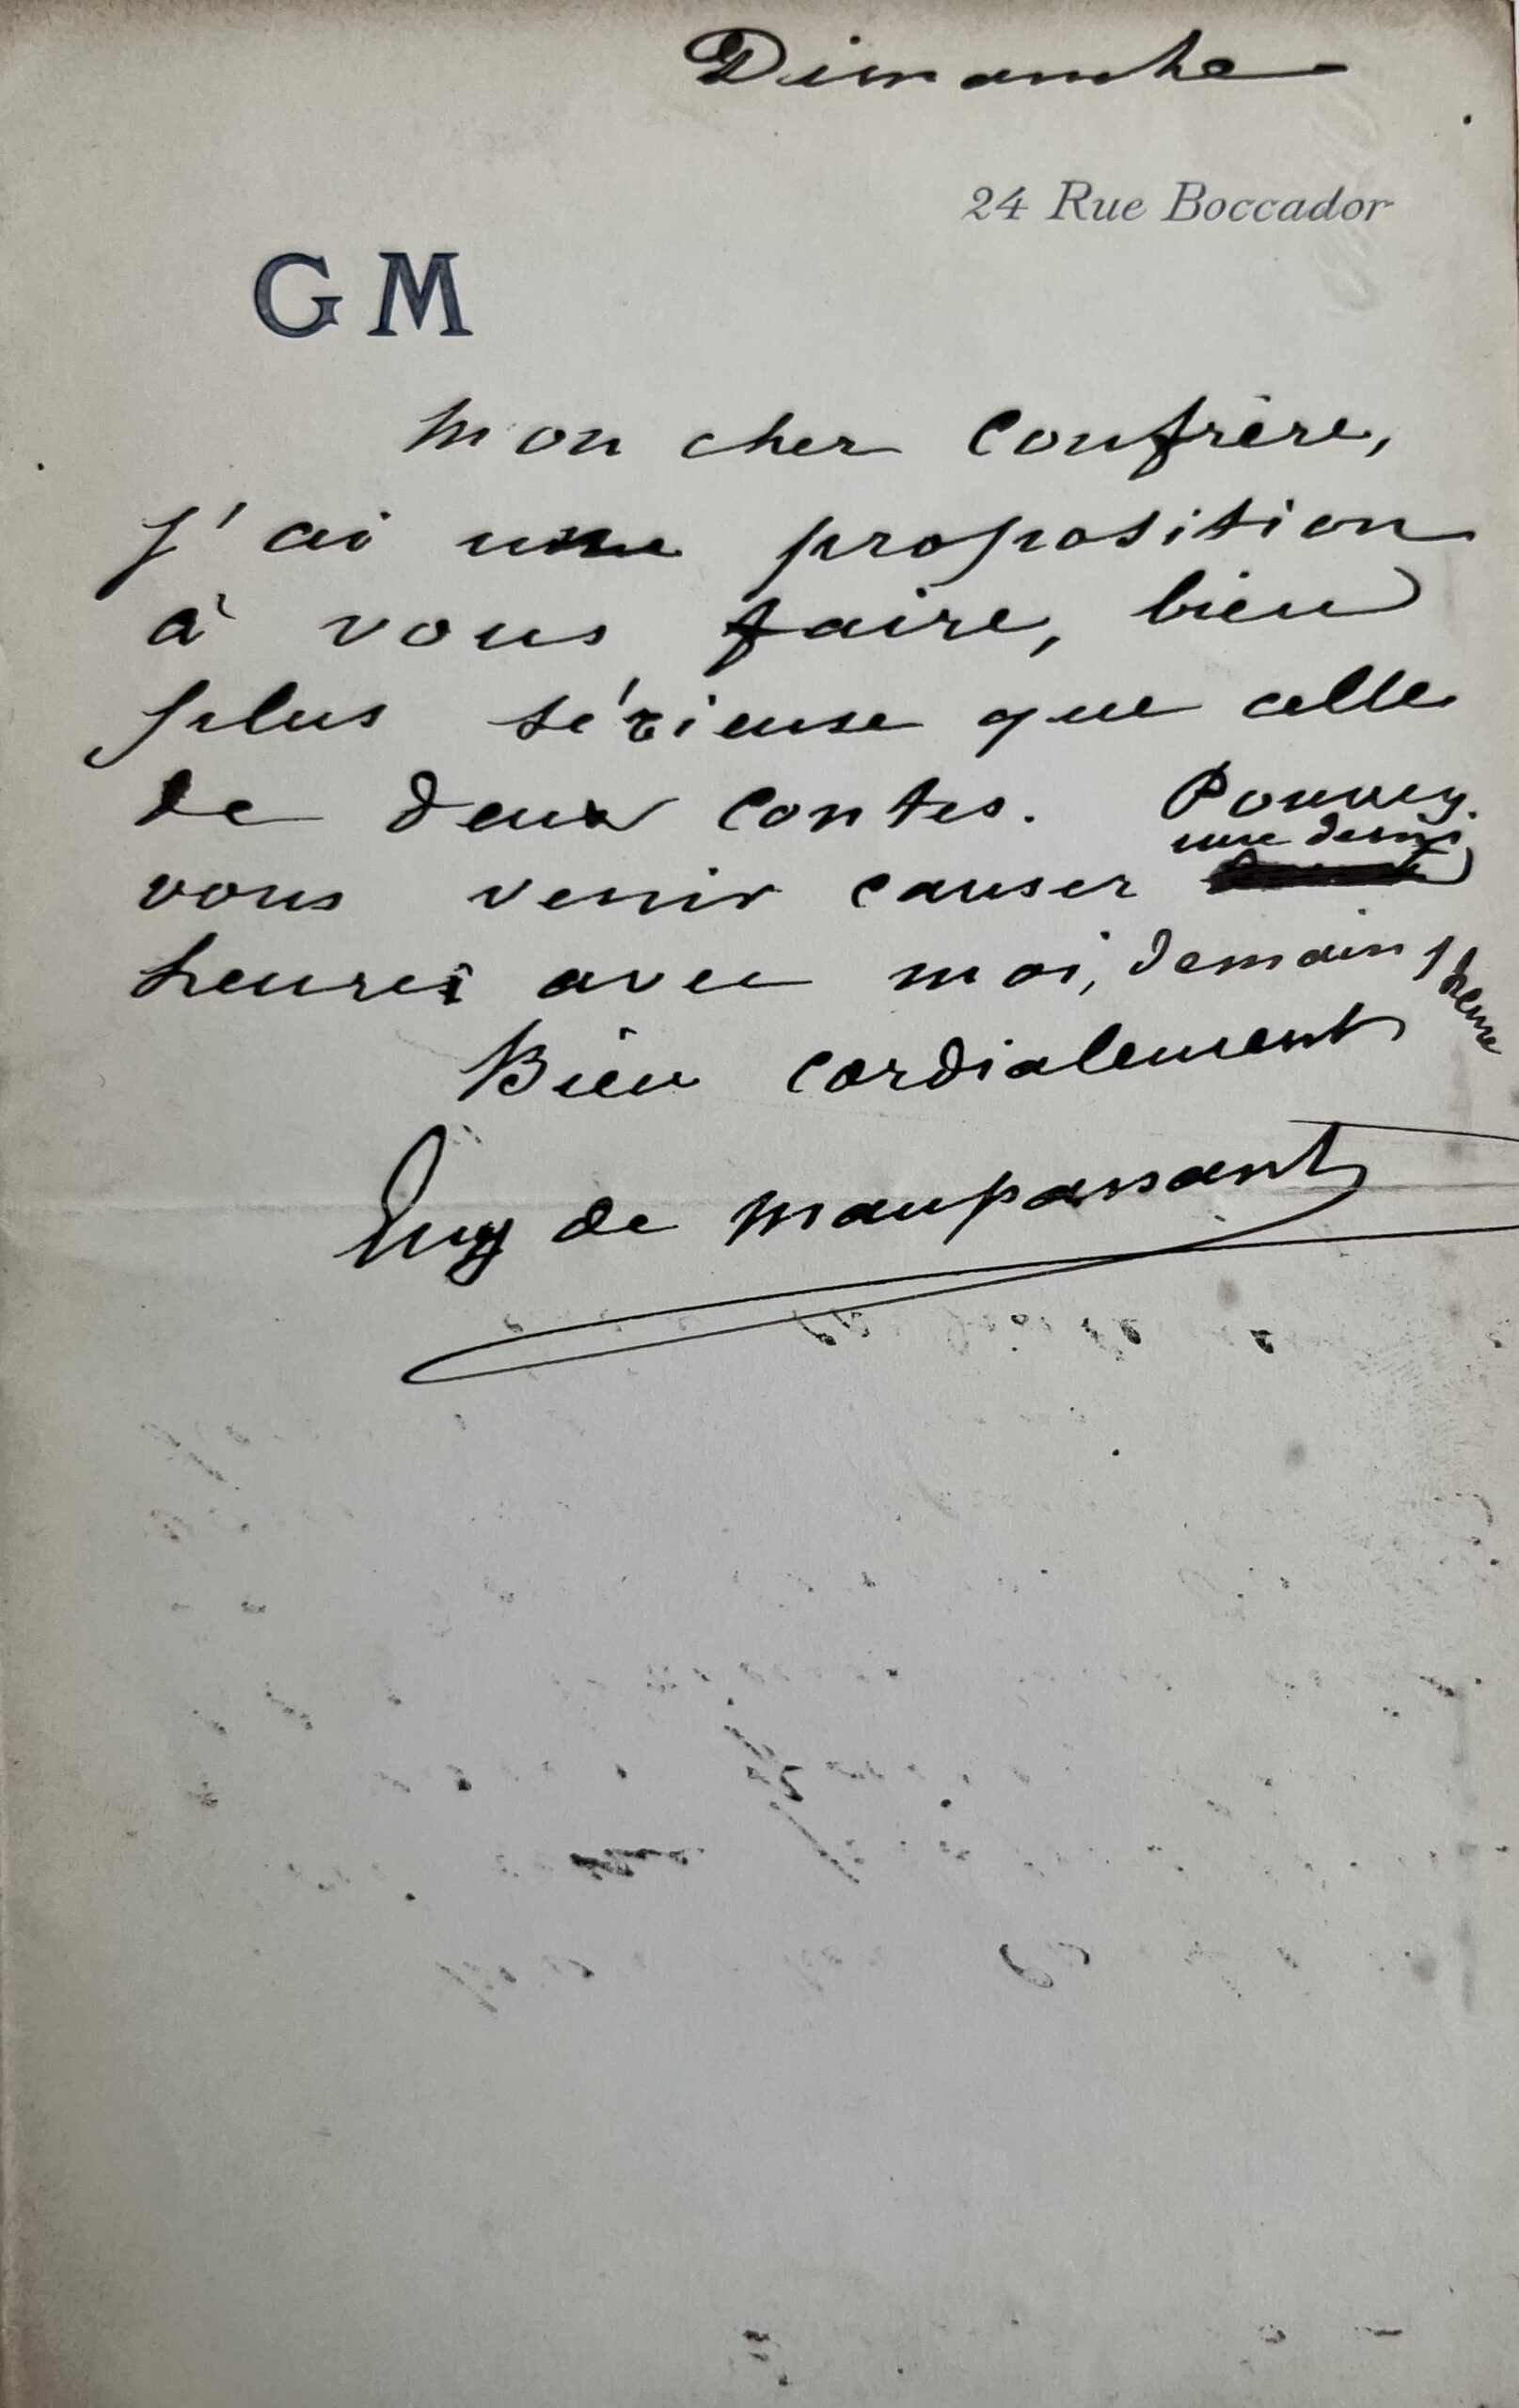 Dimanche
24 Rue Boccador
G M
Mon cher confrère,
j'ai une proposition
à vous faire, bien
plus sérieuse que celle
de deux contes. Pouvez-
une demi
vous venir causer
heure avec moi, demain 1 heure
Bien cordialement
Guy de Maupassant